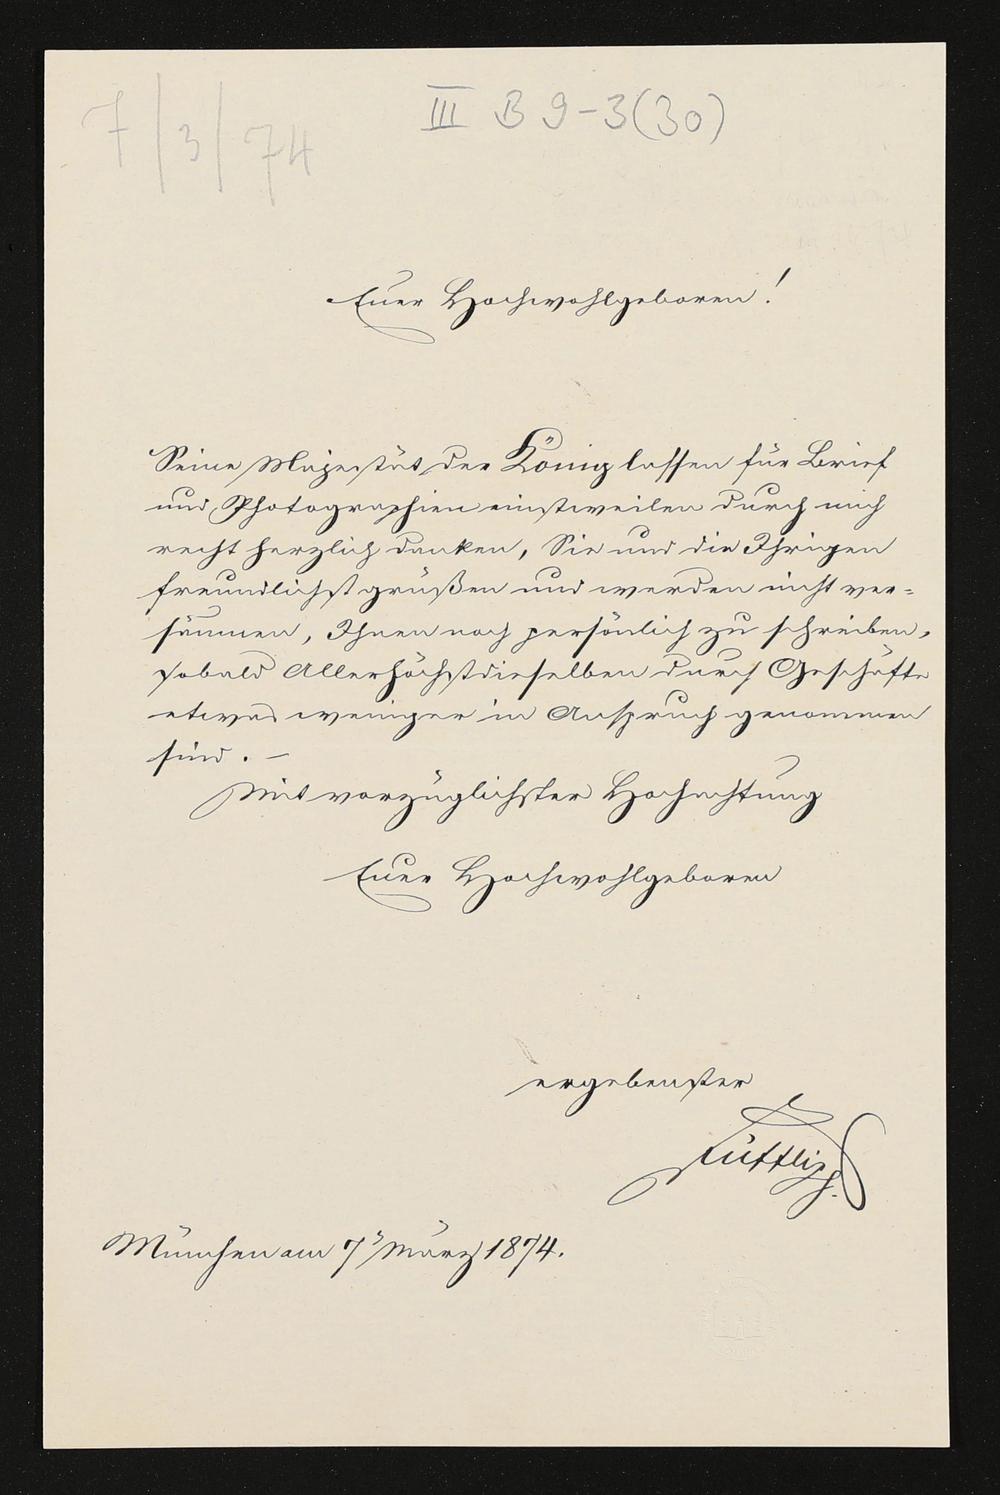 7/3/74
III B 9-3(30)
Euer Hochwohlgeboren!
Seine Majestät der König lassen für Brief
und Photographien einstweilen durch mich
recht herzlich danken, Sie und die Ihrigen
freundlichst grüßen und werden nicht ver-
säumen, Ihnen noch persönlich zu schreiben,
sobald Allerhöchstdieselben durch Geschäfte
etwas weniger in Anspruch genommen
sind. –
Mit vorzüglichster Hochachtung
Euer Hochwohlgeboren
ergebenster
München am 7' März 1874.